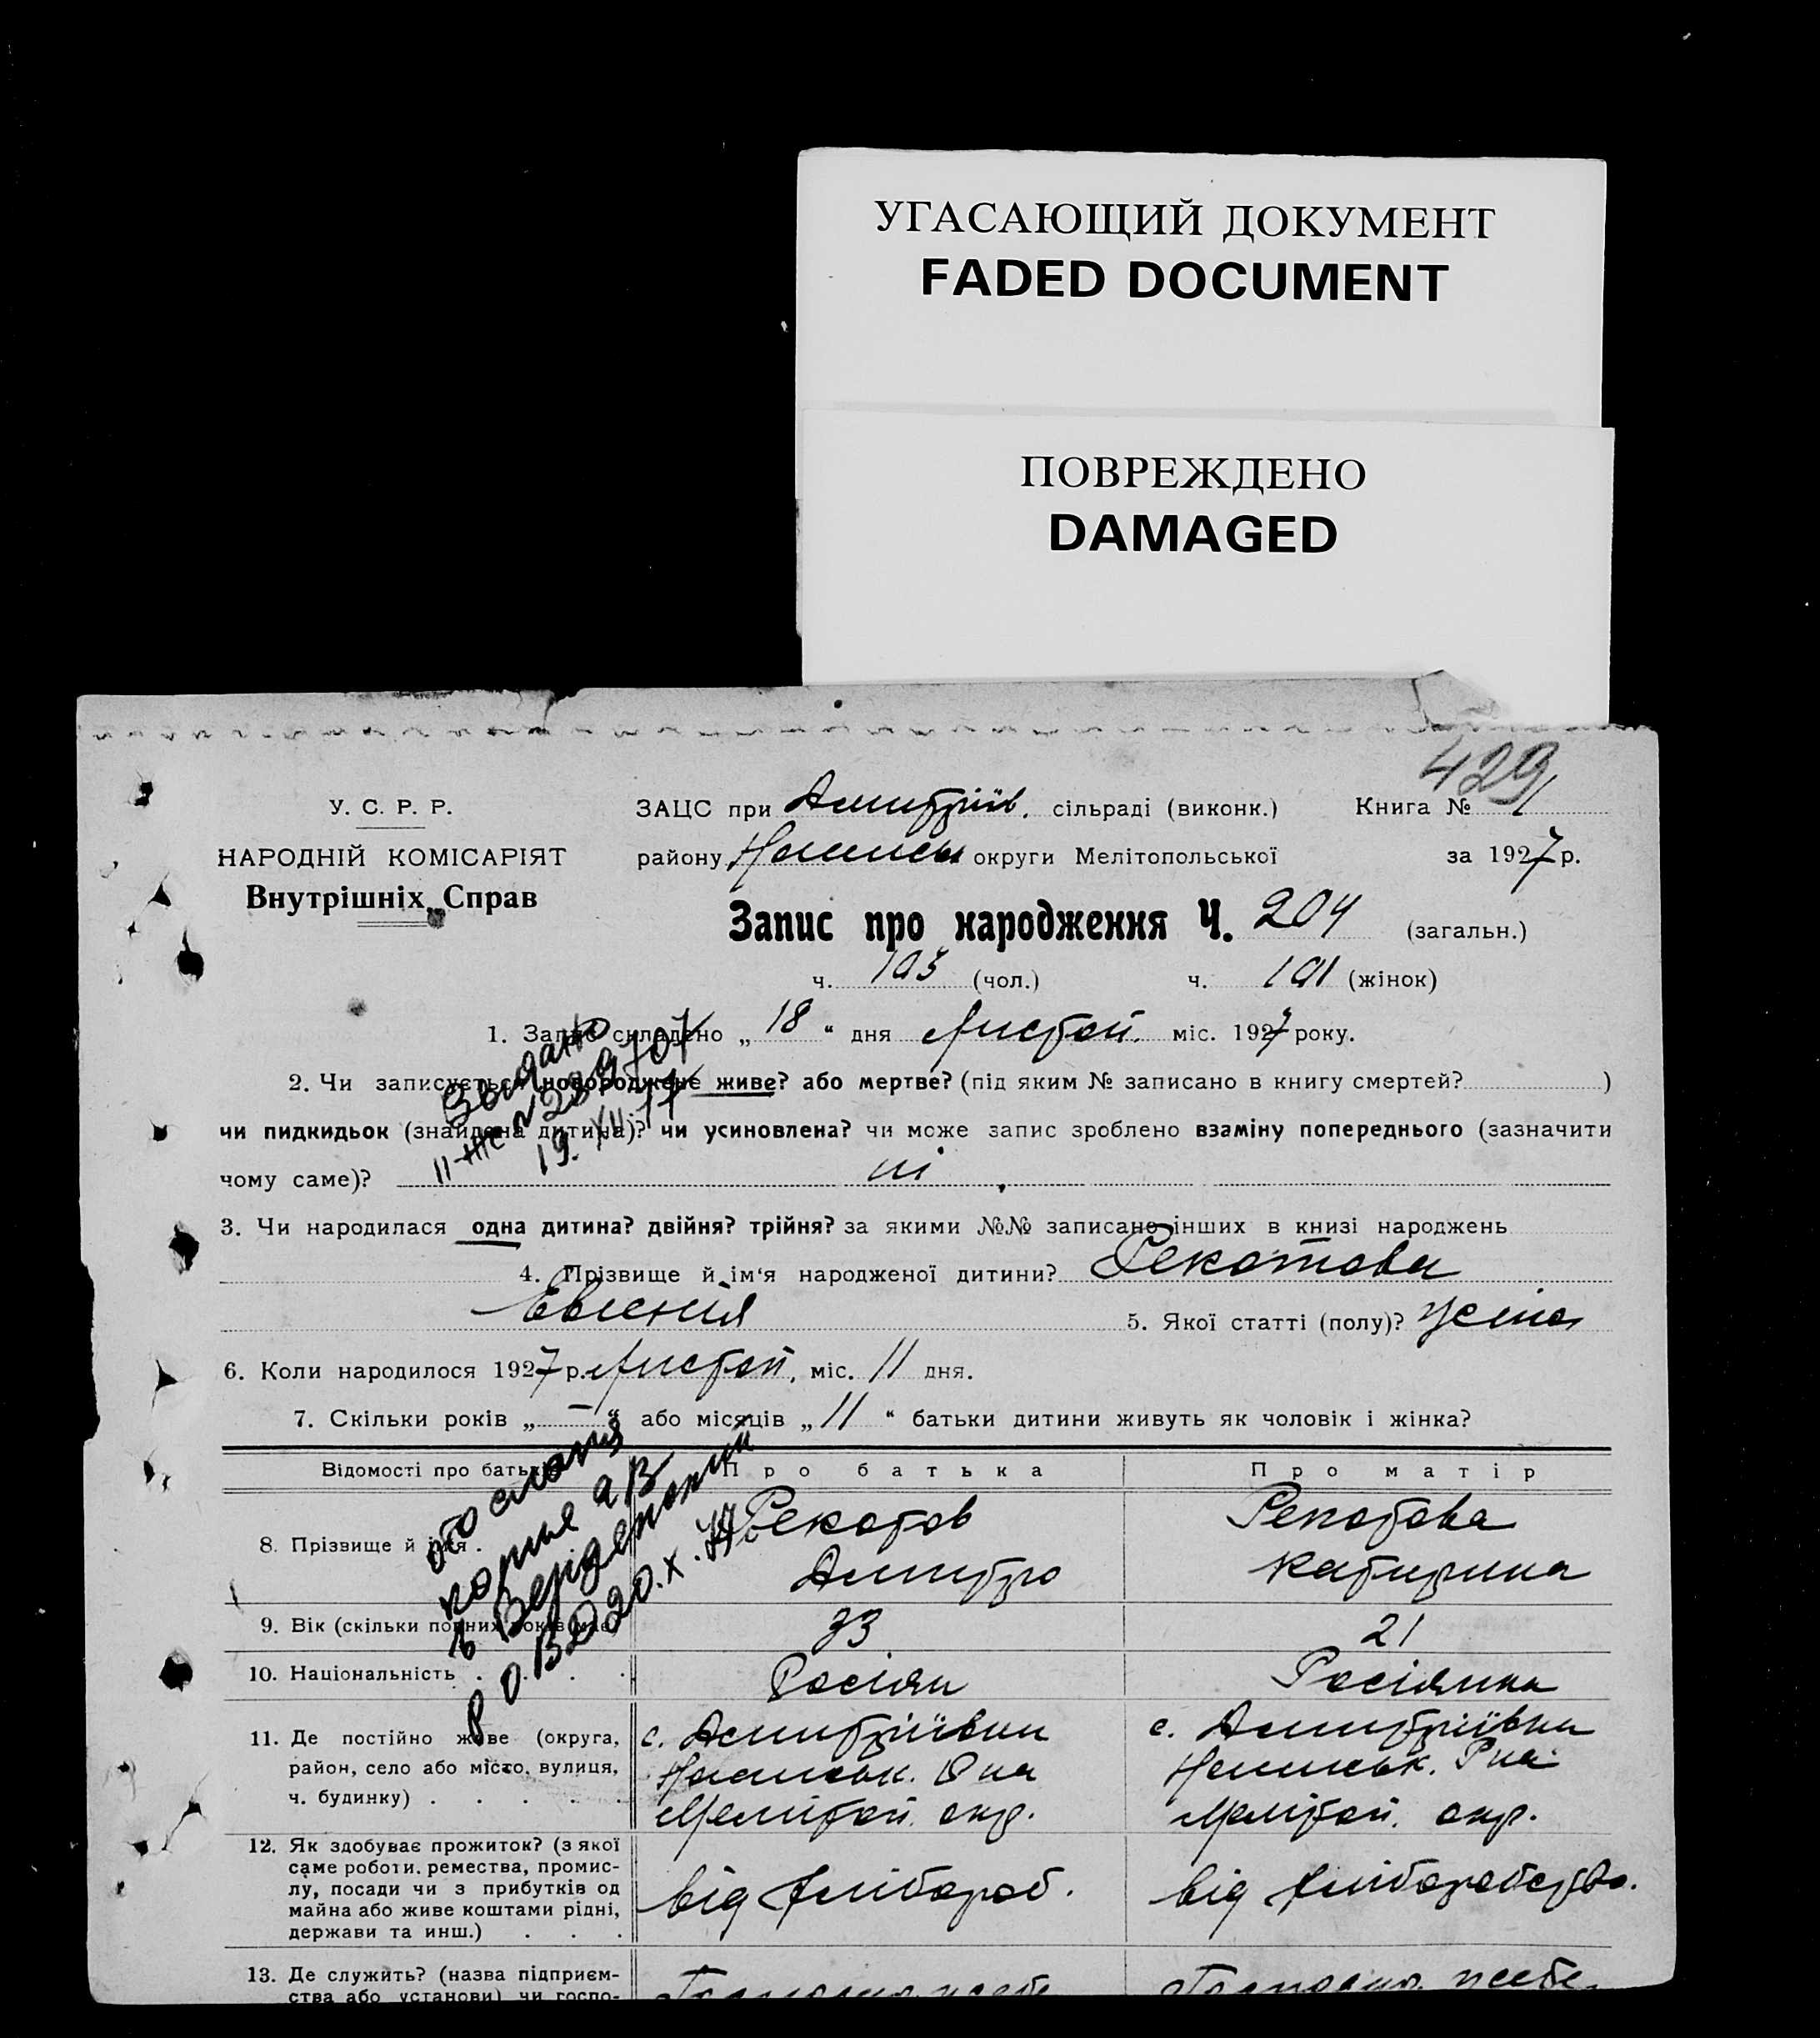 УГАСАЮЩИЙ ДОКУМЕНТ
FADED DOCUMENT
ПОВРЕЖДЕНО
DAMAGED
429
У. С. Р. Р.
НАРОДНІЙ КОМІСАРІЯТ
Внутрішніх Справ
ЗАЦС при Дмитріїв. сільраді (виконк.) Книга № 1
району округи Мелітопольської за 1927 р.
Запис про народження Ч. 204 (загальн.)
ч. 103 (чол.) ч. 101 (жінок)
1. Запис складено „ 18 “ дня Листоп. міс. 1927 року.
2. Чи записується новороджене живе? або мертве? (під яким № записано в книгу смертей? )
чи пидкидьок (знайдена дитина)? чи усиновлена? чи може запис зроблено взаміну попереднього (зазначити
чому саме)? ні
3. Чи народилася одна дитина? двійня? трійня? за якими №№ записано інших в книзі народжень
4. Прізвище й ім‘я народженої дитини? Рекотова
Евгенія 5. Якої статті (полу)? жіноч
6. Коли народилося 1927 р. Листоп. міс. 11 дня.
7. Скільки років „ — “ або місяців „ 11 “ батьки дитини живуть як чоловік і жінка?
Видано
II-ЖС № 2389707
19. XII. 77
Відомості про батьків Про батька Про матір
8. Прізвище й ім'я . Рекотов Рекотова
Дмитро Катирина
9. Вік (скільки повних років має) 33 21
10. Національність . . . . Росіян Росіянка
11. Де постійно живе (округа, с. Дмитріївки с. Дмитріївки
район, село або місто, вулиця, Р на Р на
ч. будинку) . . . . . Мелітоп. окр. Мелітоп. окр.
12. Як здобуває прожиток? (з якої
саме роботи, ремества, промис-
лу, посади чи з прибутків од від хлібороб. від хліборобство.
майна або живе коштами рідні,
держави та инш.) . . .
13. Де служить? (назва підприєм-
ства або установи) чи госпо-
отослана
копия а В